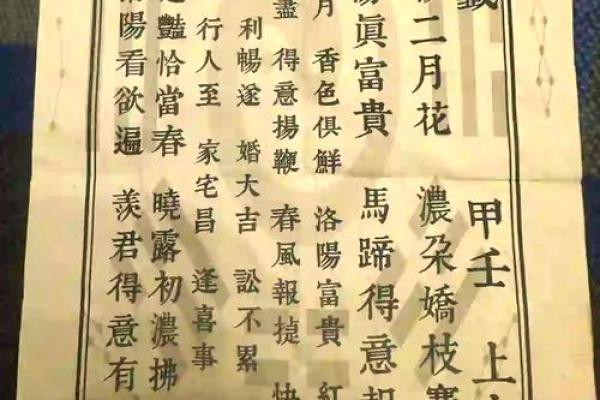 甲壬 上
二月花 濃朶嬌枝
眞富貴 馬蹄得意
月 香色俱鮮 洛陽富貴 紅
盡 得意揚鞭 春風報捷 快
利暢遂 婚大吉 訟不累
行人至 家宅昌 逢喜事
豔恰當春 曉露初濃拂
陽看欲遍 羨君得意有